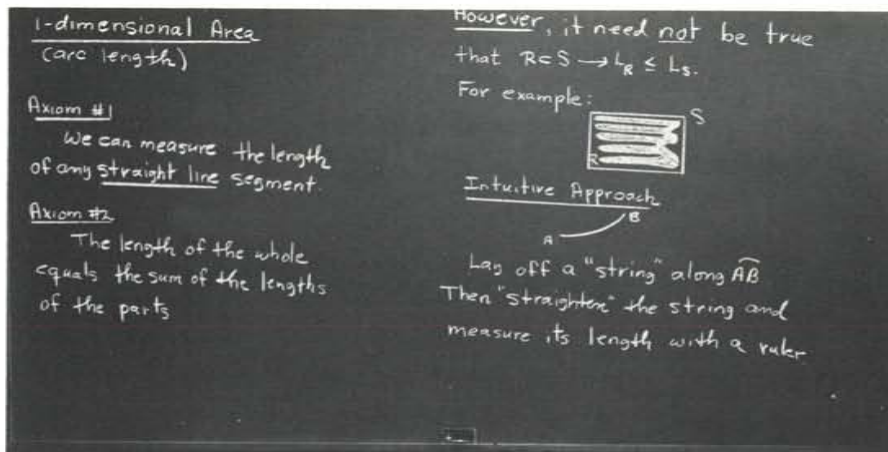 1-dimensional Area
(arc length)
Axiom #1
We can measure the length
of any straight line segment.
Axiom #2
The length of the whole
equals the sum of the lengths
of the parts
However, it need not be true
that R⊂S → L_R ≤ L_S.
For example:
S
R
Intuitive Approach
B
A
Lay off a "string" along AB
Then "straighten" the string and
measure its length with a ruler